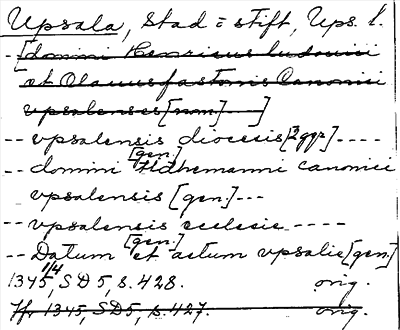 Upsala, Stad = stift, Ups. l.
-- [domini Henricus ludouici
et Olauus fastonis Canonici
vpsalenses [nom] ]
-- vpsalensis diocesis [2 ggr] ----
-- domini [gen.] Hdhemanni canonici
vpsalensis [gen.] ---
-- vpsalensis ecclesie ----
-- Datum [gen.] et actum vpsalie [gen.]
1345 1/4, SD5, s. 428. orig.
Jfr 1345, SD5, s. 427. orig.